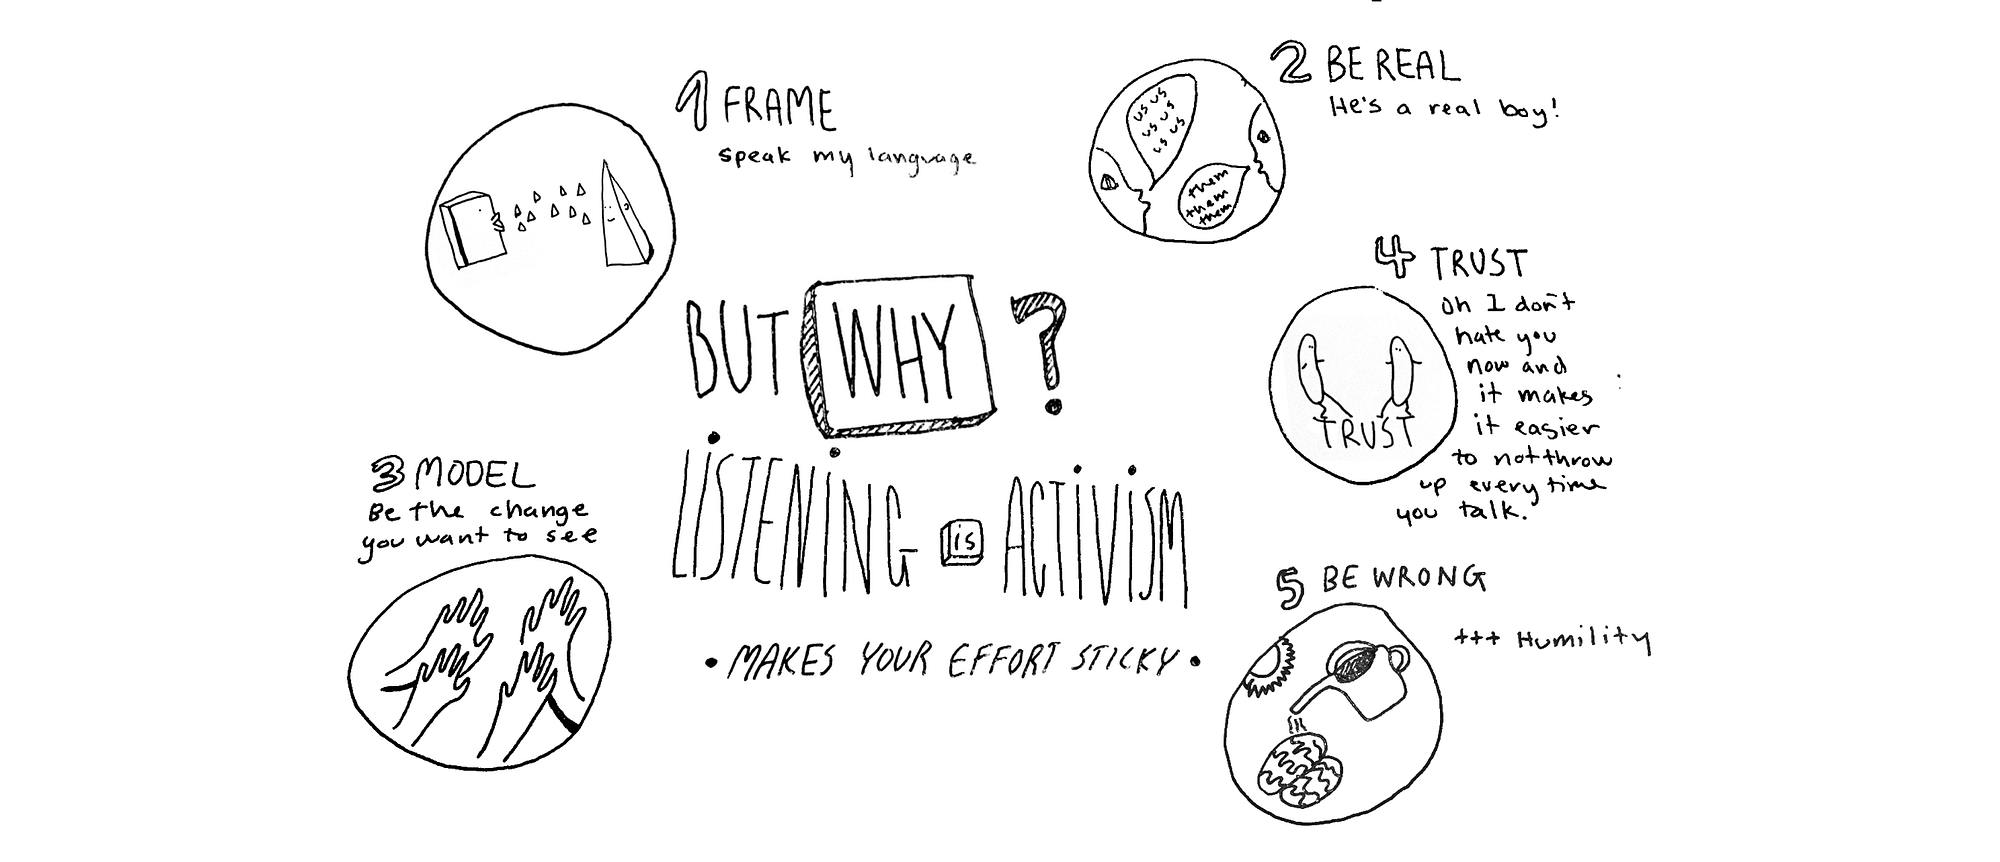 1 FRAME
speak my language
2 BE REAL
He's a real boy!
us us
us us
us us
them
them
them
BUT WHY ?
LISTENING is ACTIVISM
• MAKES YOUR EFFORT STICKY •
3 MODEL
Be the change
you want to see
4 TRUST
Oh I don't
hate you
now and
it makes
it easier
to not throw
up every time
you talk.
TRUST
5 BE WRONG
+++ Humility